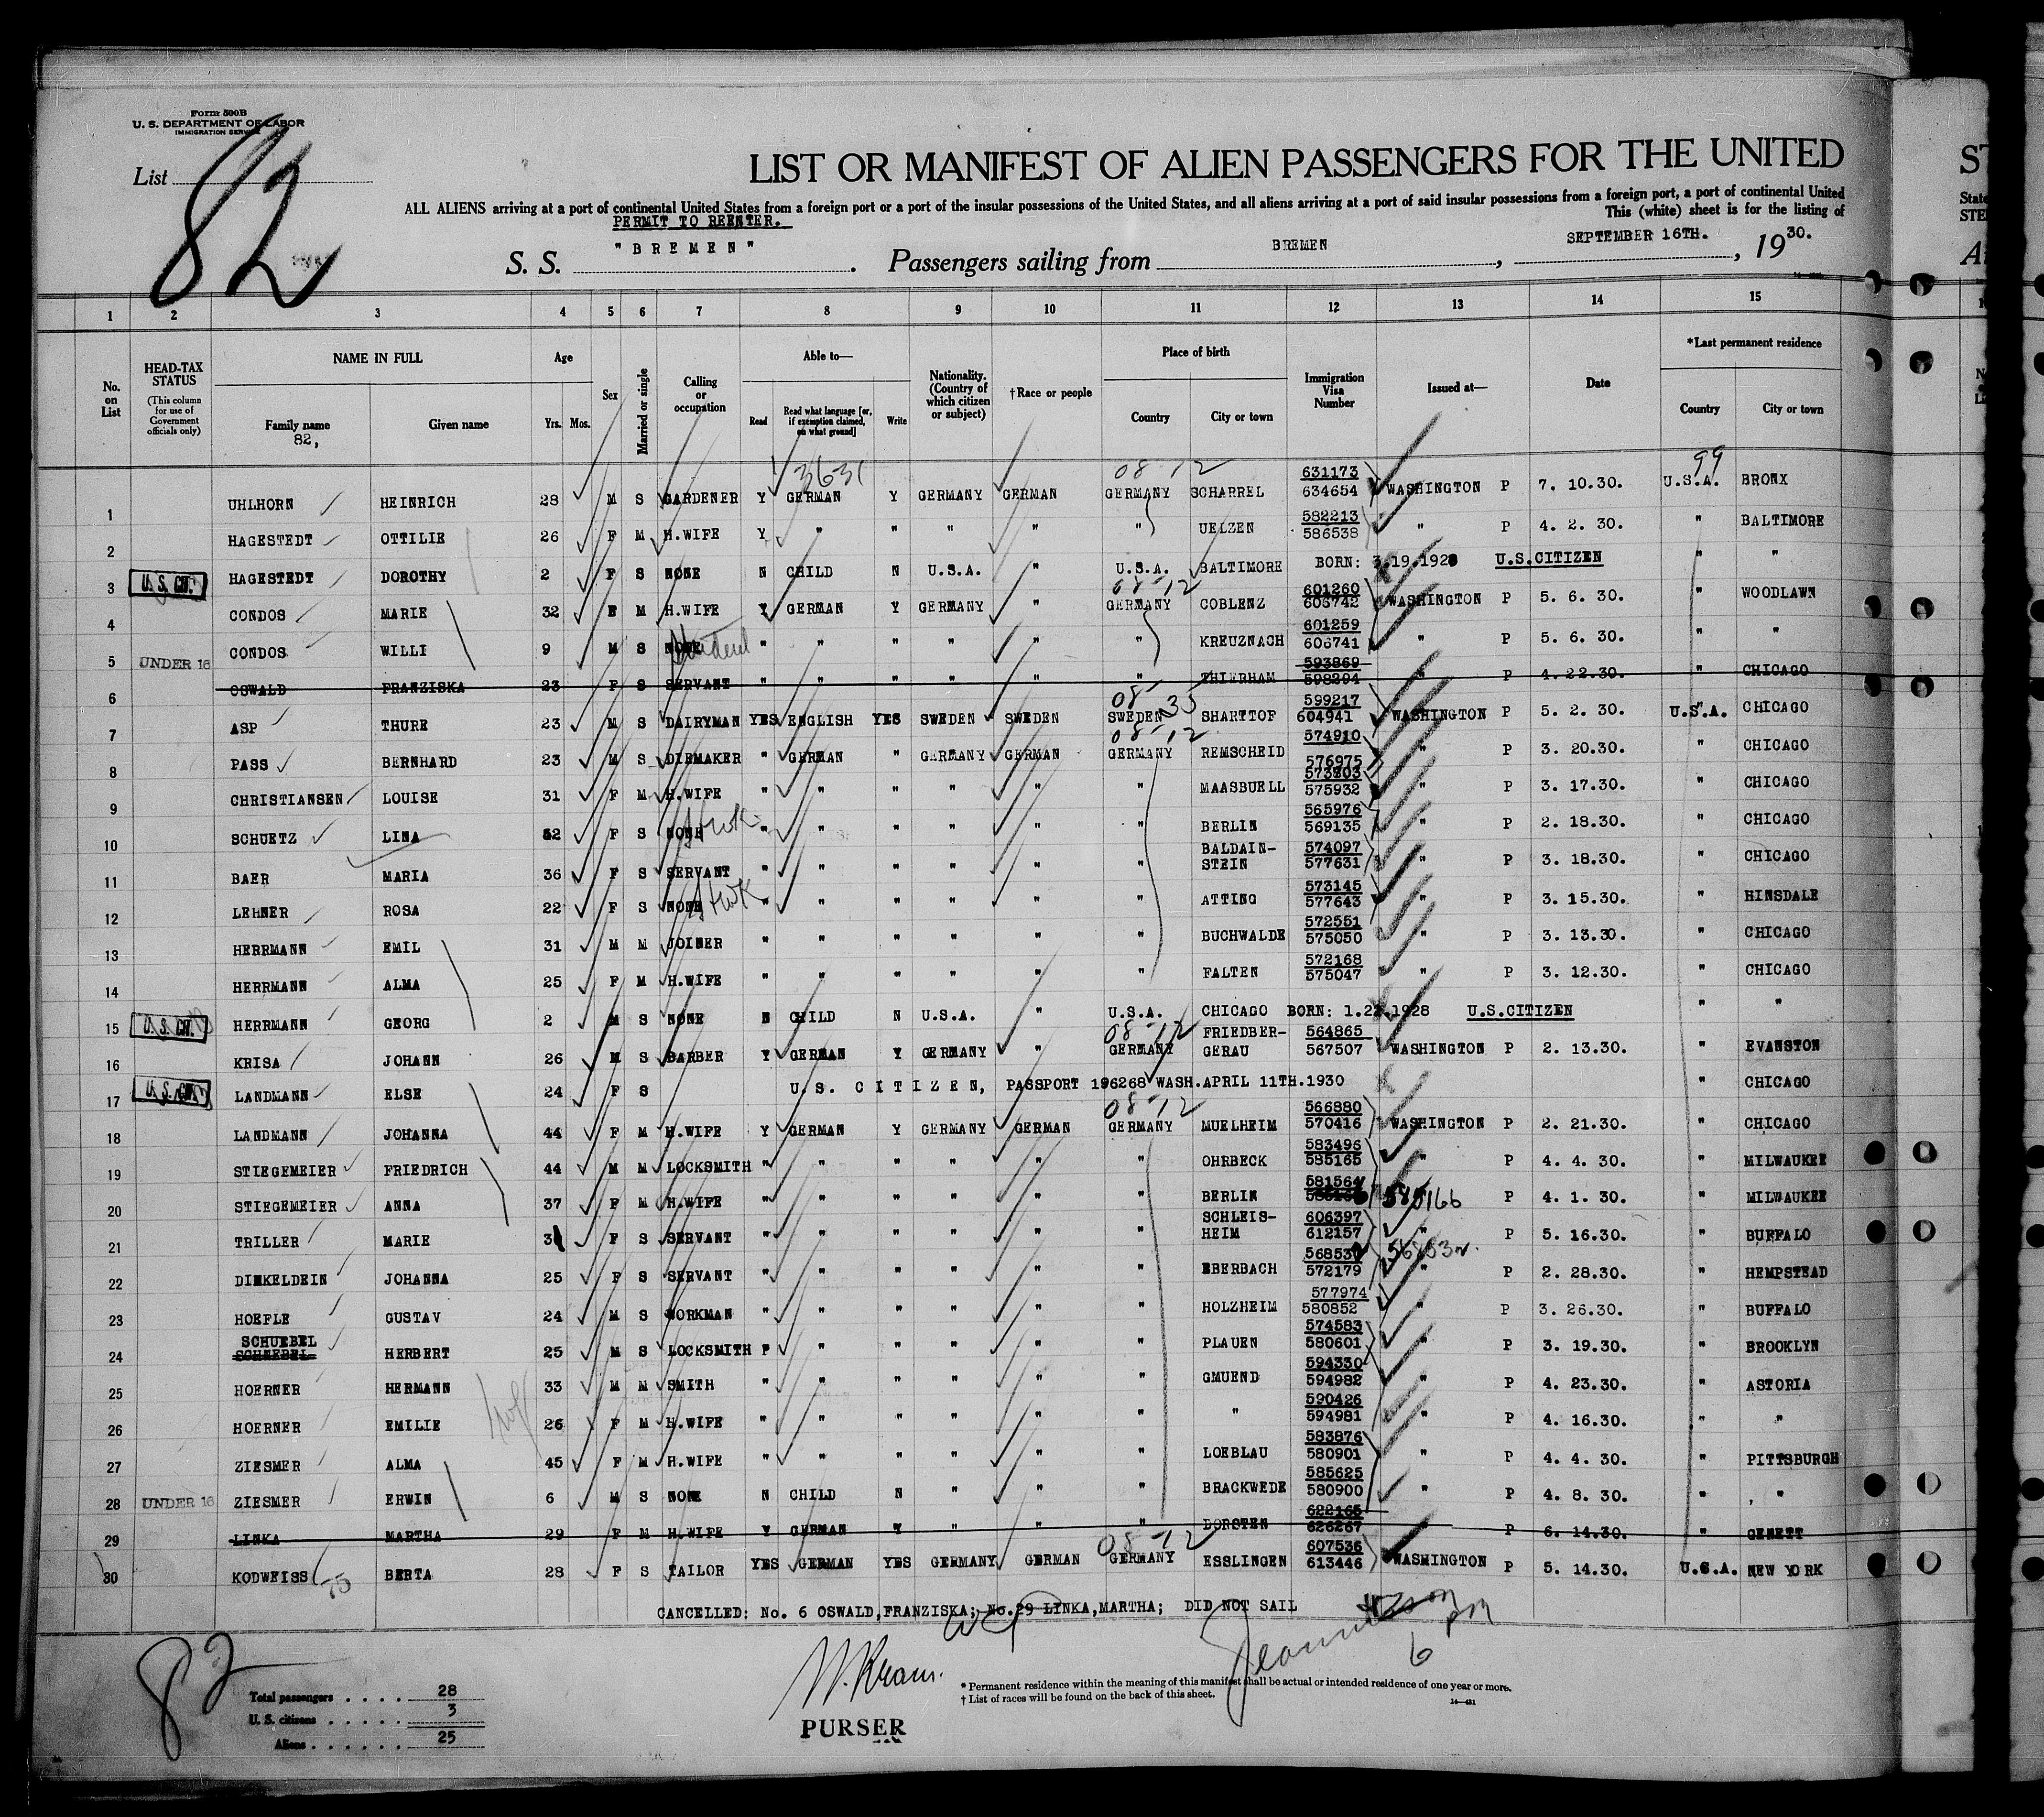 Form 500B
U. S. DEPARTMENT OF LABOR
IMMIGRATION SERVICE
List 82
LIST OR MANIFEST OF ALIEN PASSENGERS FOR THE UNITED
ALL ALIENS arriving at a port of continental United States from a foreign port or a port of the insular possessions of the United States, and all aliens arriving at a port of said insular possessions from a foreign port, a port of continental United
PERMIT TO REENTER.
This (white) sheet is for the listing of
S. S. "BREMEN". Passengers sailing from BREMEN, SEPTEMBER 16TH., 1930.
1 2 3 4 5 6 7 8 9 10 11 12 13 14 15
No. on List
HEAD-TAX STATUS
(This column for use of Government officials only)
NAME IN FULL
Family name
82,
Given name
Age
Yrs. Mos.
Sex
Married or single
Calling or occupation
Able to—
Read
Read what language [or, if exemption claimed, on what ground]
Write
Nationality. (Country of which citizen or subject)
†Race or people
Place of birth
Country
City or town
Immigration Visa Number
Issued at—
Date
*Last permanent residence
Country
City or town
3631 08-12 99
1 UHLHORN HEINRICH 28 M S GARDENER Y GERMAN Y GERMANY GERMAN GERMANY SCHARREL 631173 634654 WASHINGTON P 7. 10.30. U.S.A. BRONX
2 HAGESTEDT OTTILIE 26 F M H.WIFE Y " " " " " UELZEN 582213 586538 " P 4. 2. 30. " BALTIMORE
3 U.S. CIT. HAGESTEDT DOROTHY 2 F S NONE N CHILD N U.S.A. " U.S.A. BALTIMORE BORN: 3.19.1928 U.S.CITIZEN " "
08-12
4 CONDOS MARIE 32 F M H.WIFE Y GERMAN Y GERMANY " GERMANY COBLENZ 601260 606742 WASHINGTON P 5. 6. 30. " WOODLAWN
5 UNDER 16 CONDOS WILLI 9 M S NONE Student " " " " " " KREUZNACH 601259 606741 " P 5. 6. 30. " "
6 OSWALD FRANZISKA 23 F S SERVANT " " " " " " THIERHAM 593869 598294 " P 4.22.30. " CHICAGO
08-35
7 ASP THURE 23 M S DAIRYMAN YES ENGLISH YES SWEDEN SWEDEN SWEDEN SHARTTOF 599217 604941 WASHINGTON P 5. 2. 30. U.S.A. CHICAGO
08-12
8 PASS BERNHARD 23 M S DIEMAKER " GERMAN " GERMANY GERMAN GERMANY REMSCHEID 574910 576975 " P 3. 20.30. " CHICAGO
9 CHRISTIANSEN LOUISE 31 F M H.WIFE " " " " " " MAASBUELL 573803 575932 " P 3. 17.30. " CHICAGO
10 SCHUETZ LINA 52 F S NONE Hwk " " " " " " BERLIN 565976 569135 " P 2. 18.30. " CHICAGO
11 BAER MARIA 36 F S SERVANT " " " " " " BALDAIN-STEIN 574097 577631 " P 3. 18.30. " CHICAGO
12 LEHNER ROSA 22 F S NONE Hwk " " " " " " ATTING 573145 577643 " P 3. 15.30. " HINSDALE
13 HERRMANN EMIL 31 M M JOINER " " " " " " BUCHWALDE 572551 575050 " P 3. 13.30. " CHICAGO
14 HERRMANN ALMA 25 F M H.WIFE " " " " " " FALTEN 572168 575047 " P 3. 12.30. " CHICAGO
15 U.S. CIT. HERRMANN GEORG 2 M S NONE N CHILD N U.S.A. " U.S.A. CHICAGO BORN: 1.22.1928 U.S.CITIZEN " "
08-12
16 KRISA JOHANN 26 M S BARBER Y GERMAN Y GERMANY " GERMANY FRIEDBER-GERAU 564865 567507 WASHINGTON P 2. 13.30. " EVANSTON
17 U.S. CIT. LANDMANN ELSE 24 F S U.S. CITIZEN, PASSPORT 196268 WASH.APRIL 11TH.1930 " CHICAGO
08-12
18 LANDMANN JOHANNA 44 F M H.WIFE Y GERMAN Y GERMANY GERMAN GERMANY MUELHEIM 566880 570416 WASHINGTON P 2. 21.30. " CHICAGO
19 STIEGEMEIER FRIEDRICH 44 M M LOCKSMITH " " " " " " OHRBECK 583496 585165 " P 4. 4. 30. " MILWAUKEE
20 STIEGEMEIER ANNA 37 F M H.WIFE " " " " " " BERLIN 581564 585166 P 4. 1. 30. " MILWAUKEE
21 TRILLER MARIE F S SERVANT " " " " " " SCHLEIS-HEIM 606397 612157 " P 5. 16.30. " BUFFALO
22 DINKELDEIN JOHANNA 25 F S SERVANT " " " " " " EBERBACH 568532 572179 568532 " P 2. 28.30. " HEMPSTEAD
23 HOEFLE GUSTAV 24 M S WORKMAN " " " " " " HOLZHEIM 577974 580852 " P 3. 26.30. " BUFFALO
24 SCHUEBEL SCHNEBEL HERBERT 25 M S LOCKSMITH " " " " " PLAUEN 574583 580601 " P 3. 19.30. " BROOKLYN
25 HOERNER HERMANN 33 M M SMITH " " " " " " GMUEND 594330 594982 " P 4. 23.30. " ASTORIA
26 HOERNER EMILIE 26 F M H.WIFE " " " " " " " 590426 594981 " P 4. 16.30. " "
27 ZIESMER ALMA 45 F M H.WIFE " " " " " " LOEBLAU 583876 580901 " P 4. 4. 30. " PITTSBURGH
28 UNDER 16 ZIESMER ERWIN 6 M S NONE N CHILD N " " " BRACKWEDE 585625 580900 " P 4. 8. 30. " "
29 LINKA MARTHA 29 F M H.WIFE Y GERMAN Y " " " DORSTEN 622165 626267 P 6. 14.30. " GENETT
08-12
30 KODWEISS 75 BERTA 28 F S TAILOR YES GERMAN YES GERMANY GERMAN GERMANY ESSLINGEN 607536 613446 WASHINGTON P 5. 14.30. U.S.A. NEW YORK
CANCELLED: No. 6 OSWALD,FRANZISKA; No.29 LINKA,MARTHA; DID NOT SAIL
82
Total passengers . . . . 28
U. S. citizens . . . . . 3
Aliens . . . . . . 25
W. Kram.
PURSER
6 pm
* Permanent residence within the meaning of this manifest shall be actual or intended residence of one year or more.
† List of races will be found on the back of this sheet.